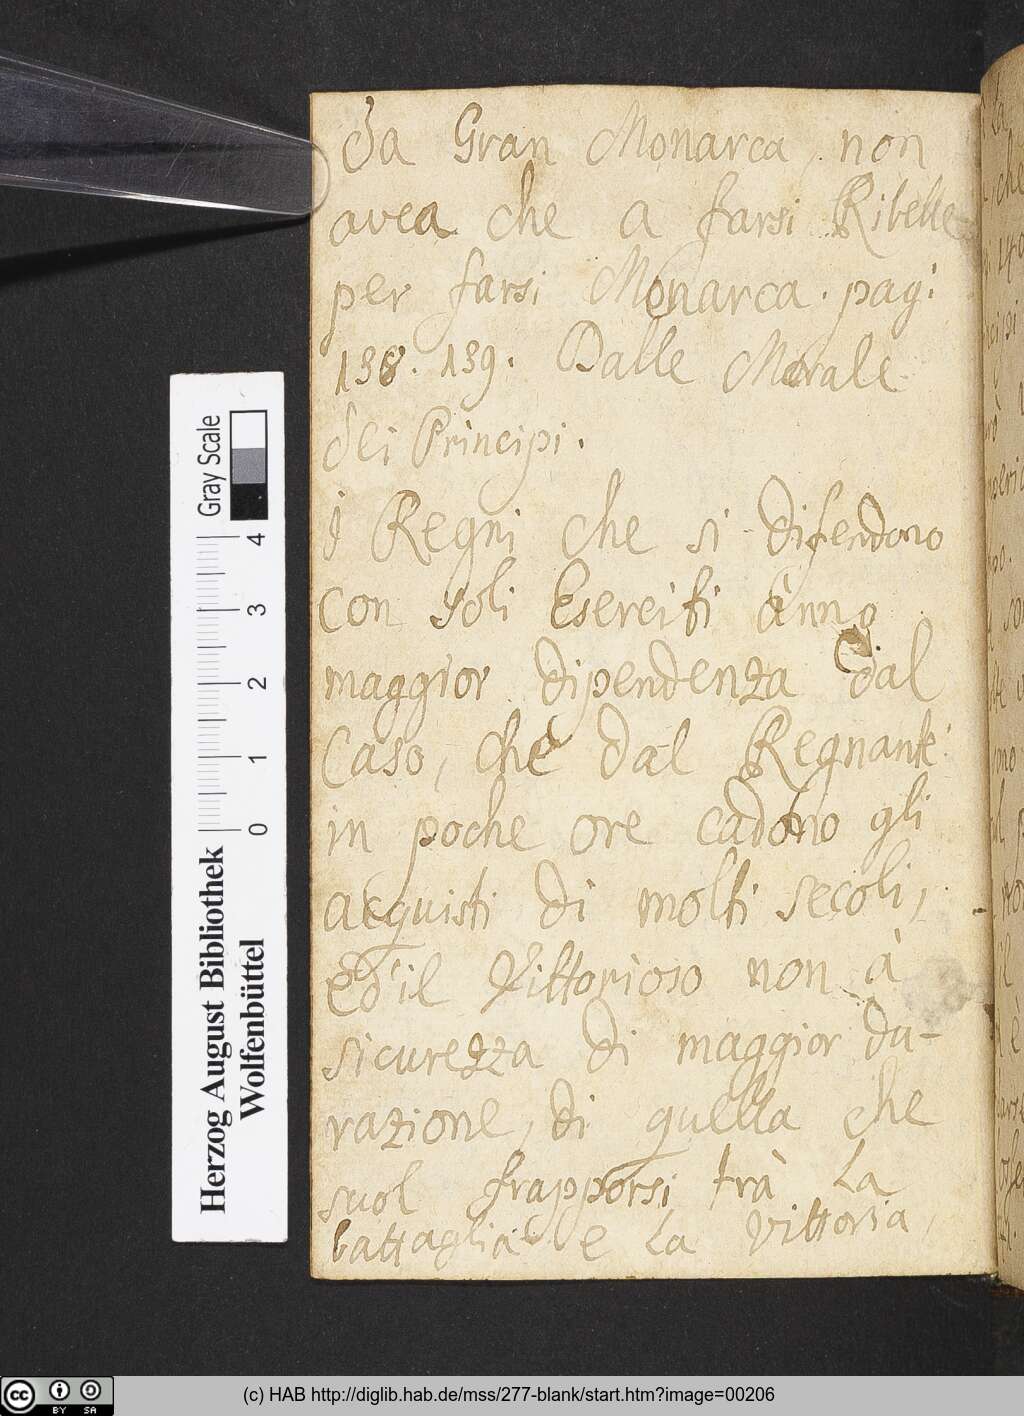 Da Gran Monarca, non
avea che a farsi Ribelle
per farsi Monarca. pagi
138. 139. Dalle Morale
dei Principi.
i Regni che si difendono
con soli Eserciti ànno
maggior dipendenza dal
Caso, che dal Regnante
in poche ore cadono gli
acquisti di molti secoli,
Ed'il Vittorioso non à
sicurezza di maggior du-
razione, di quella che
suol frapporsi trà La
battaglia e La Vittoria,
Gray Scale
4
3
2
1
0
Herzog August Bibliothek
Wolfenbüttel
cc BY SA
(c) HAB http://diglib.hab.de/mss/277-blank/start.htm?image=00206